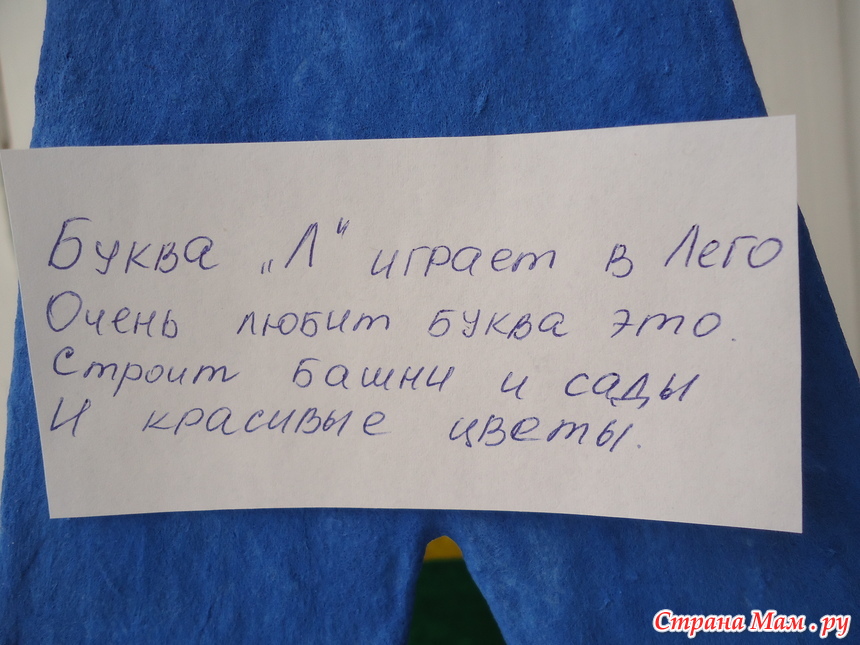 Буква „Л“ играет в Лего
Очень любит буква это.
Строит башни и сады
И красивые цветы.
Страна Мам.ру